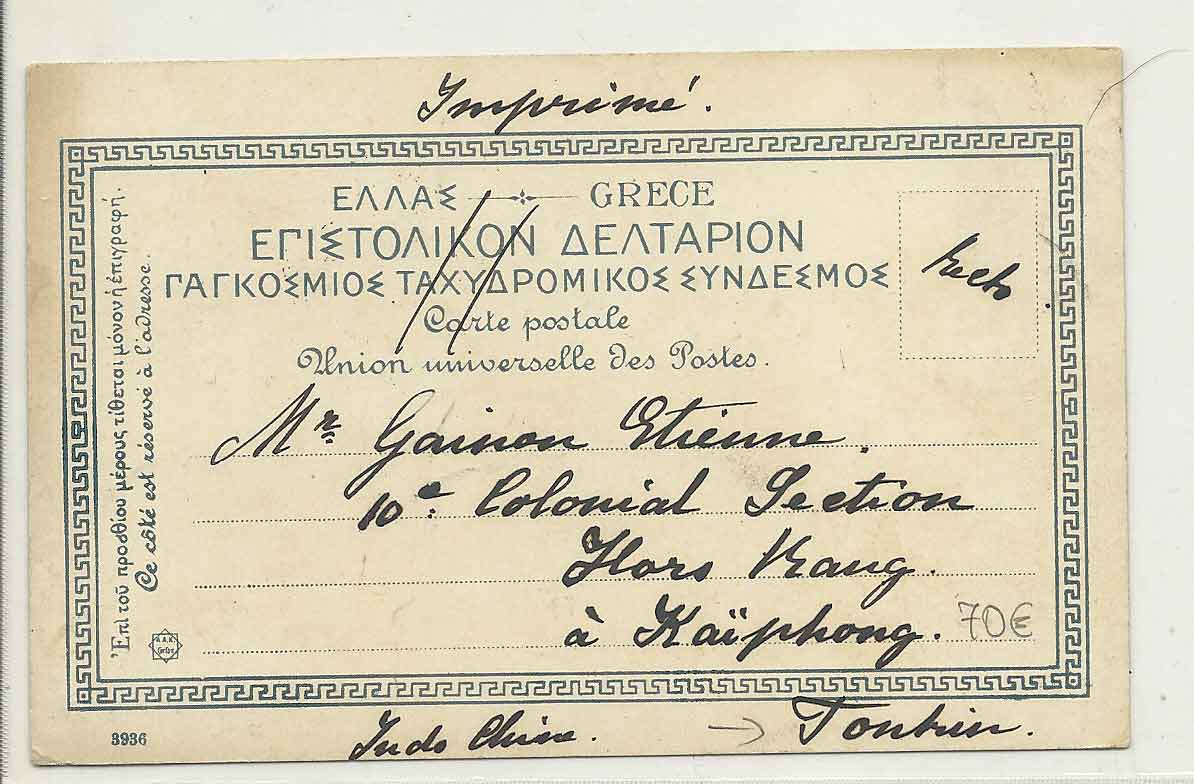 Imprimé.
ΕΛΛΑΣ GRECE
ΕΓΙΣΤΟΛΙΚΟΝ ΔΕΛΤΑΡΙΟΝ
ΓΑΓΚΟΣΜΙΟΣ ΤΑΧΥΔΡΟΜΙΚΟΣ ΣΥΝΔΕΣΜΟΣ
Carte postale
Union universelle des Postes.
Ἐπὶ τοῦ προσθίου μέρους τίθεται μόνον ἡ ἐπιγραφή.
Ce côté est réservé à l'adresse.
Mr Gainon Etienne.
10e Colonial Section
Hors Rang.
à Kaïphong. 70€
Indo Chine. → Tonkin.
3936